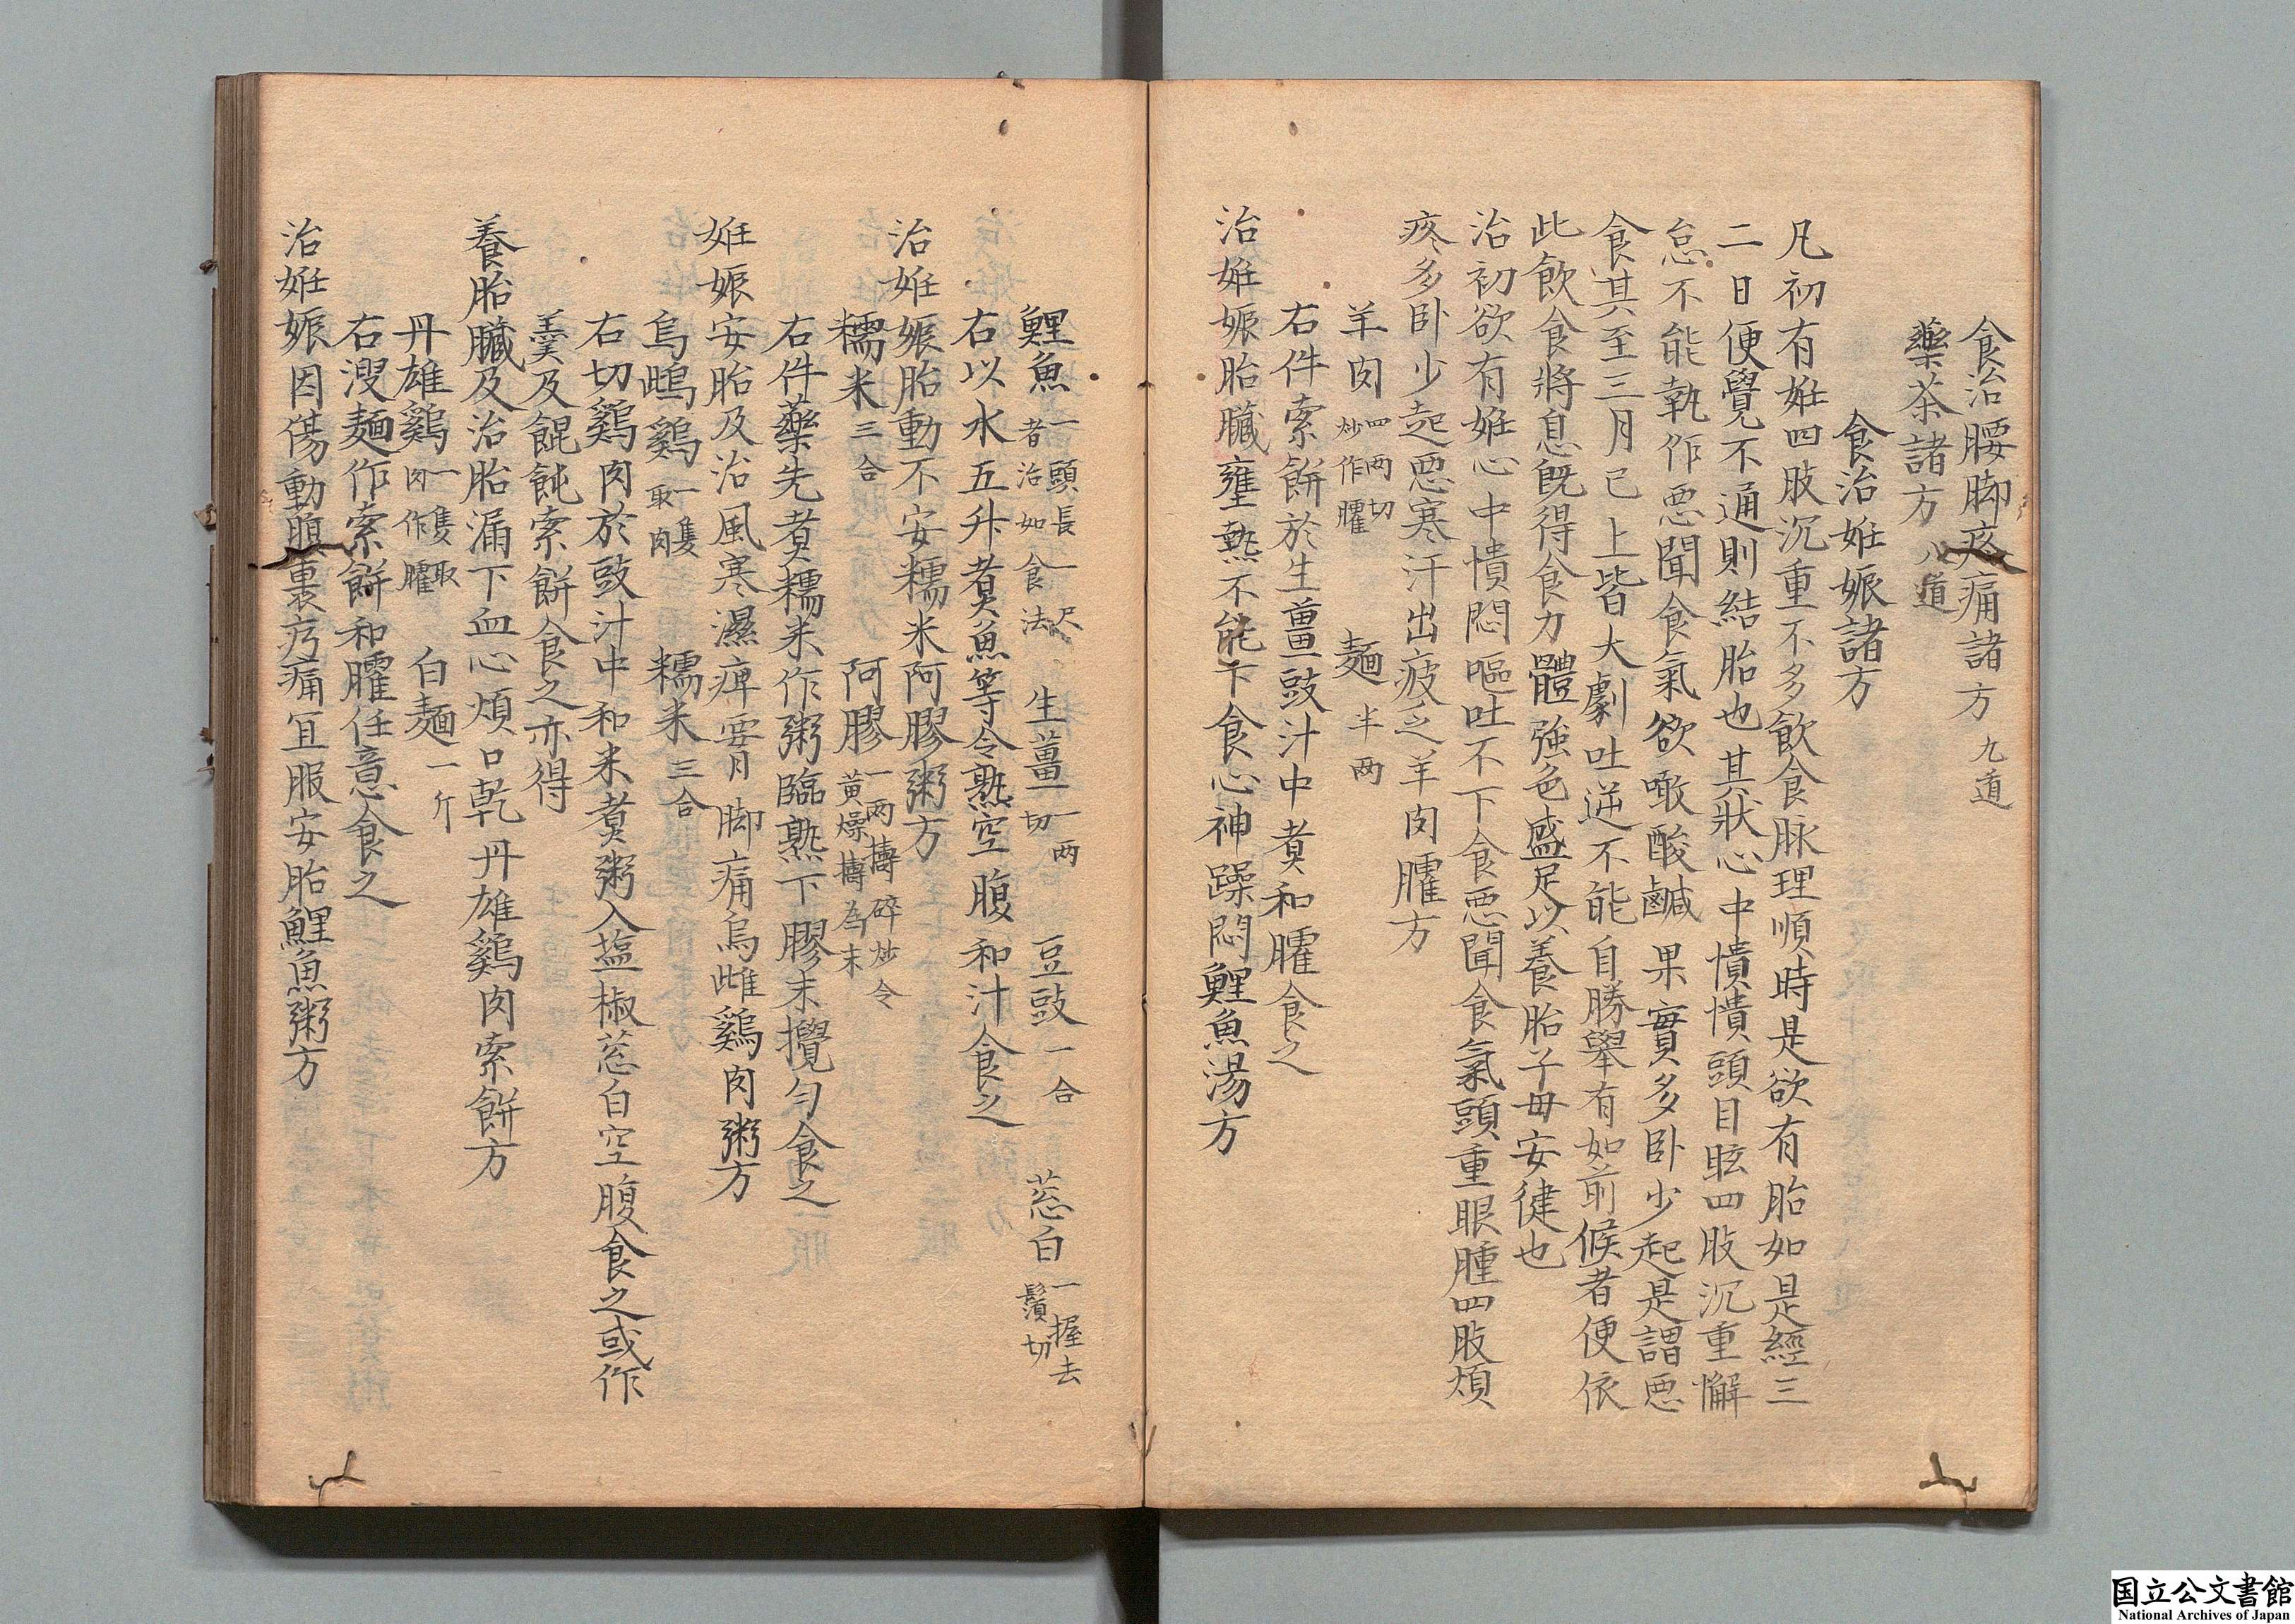 食治腰脚疼痛諸方 九道
藥茶諸方 八道
食治姙娠諸方
凡初有姙四肢沉重不多飲食脉理順時是欲有胎如是經三
二日便覺不通則結胎也其狀心中憒憒頭目眩四肢沉重懈
怠不能執作惡聞食氣欲噉酸鹹果實多卧少起是謂惡
食其至三月已上皆大劇吐逆不能自勝舉有如前候者便依
此飲食將息既得食力體強色盛足以養胎子母安健也
治初欲有姙心中憒悶嘔吐不下食惡聞食氣頭重眼腫四肢煩
疼多卧少起惡寒汗出疲乏羊肉臛方
羊肉 四兩切炒作臛 麺 半两
右件索餅於生薑豉汁中煮和臛食之
治姙娠胎臓壅熱不能下食心神躁悶鯉魚湯方
鯉魚 一頭長一尺者治如食法 生薑 一两切 豆豉 一合 葱白 一握去鬚切
右以水五升煮魚等令熟空腹和汁食之
治姙娠胎動不安糯米阿膠粥方
糯米 三合 阿膠 一两擣碎炒令黄燥擣為末
右件藥先煮糯米作粥臨熟下膠末攪匀食之
姙娠安胎及治風寒濕痺腰脚痛烏雌雞肉粥方
烏雌雞 一隻取肉 糯米 三合
右切雞肉於豉汁中和米煮粥入塩椒葱白空腹食之或作
羹及餛飩索餅食之亦得
養胎臓及治胎漏下血心煩口乾丹雄雞肉索餅方
丹雄雞 一隻取肉作臛 白麺 一斤
右溲麺作索餅和臛任意食之
治姙娠因傷動腹裏疠痛宜服安胎鯉魚粥方
国立公文書館
National Archives of Japan